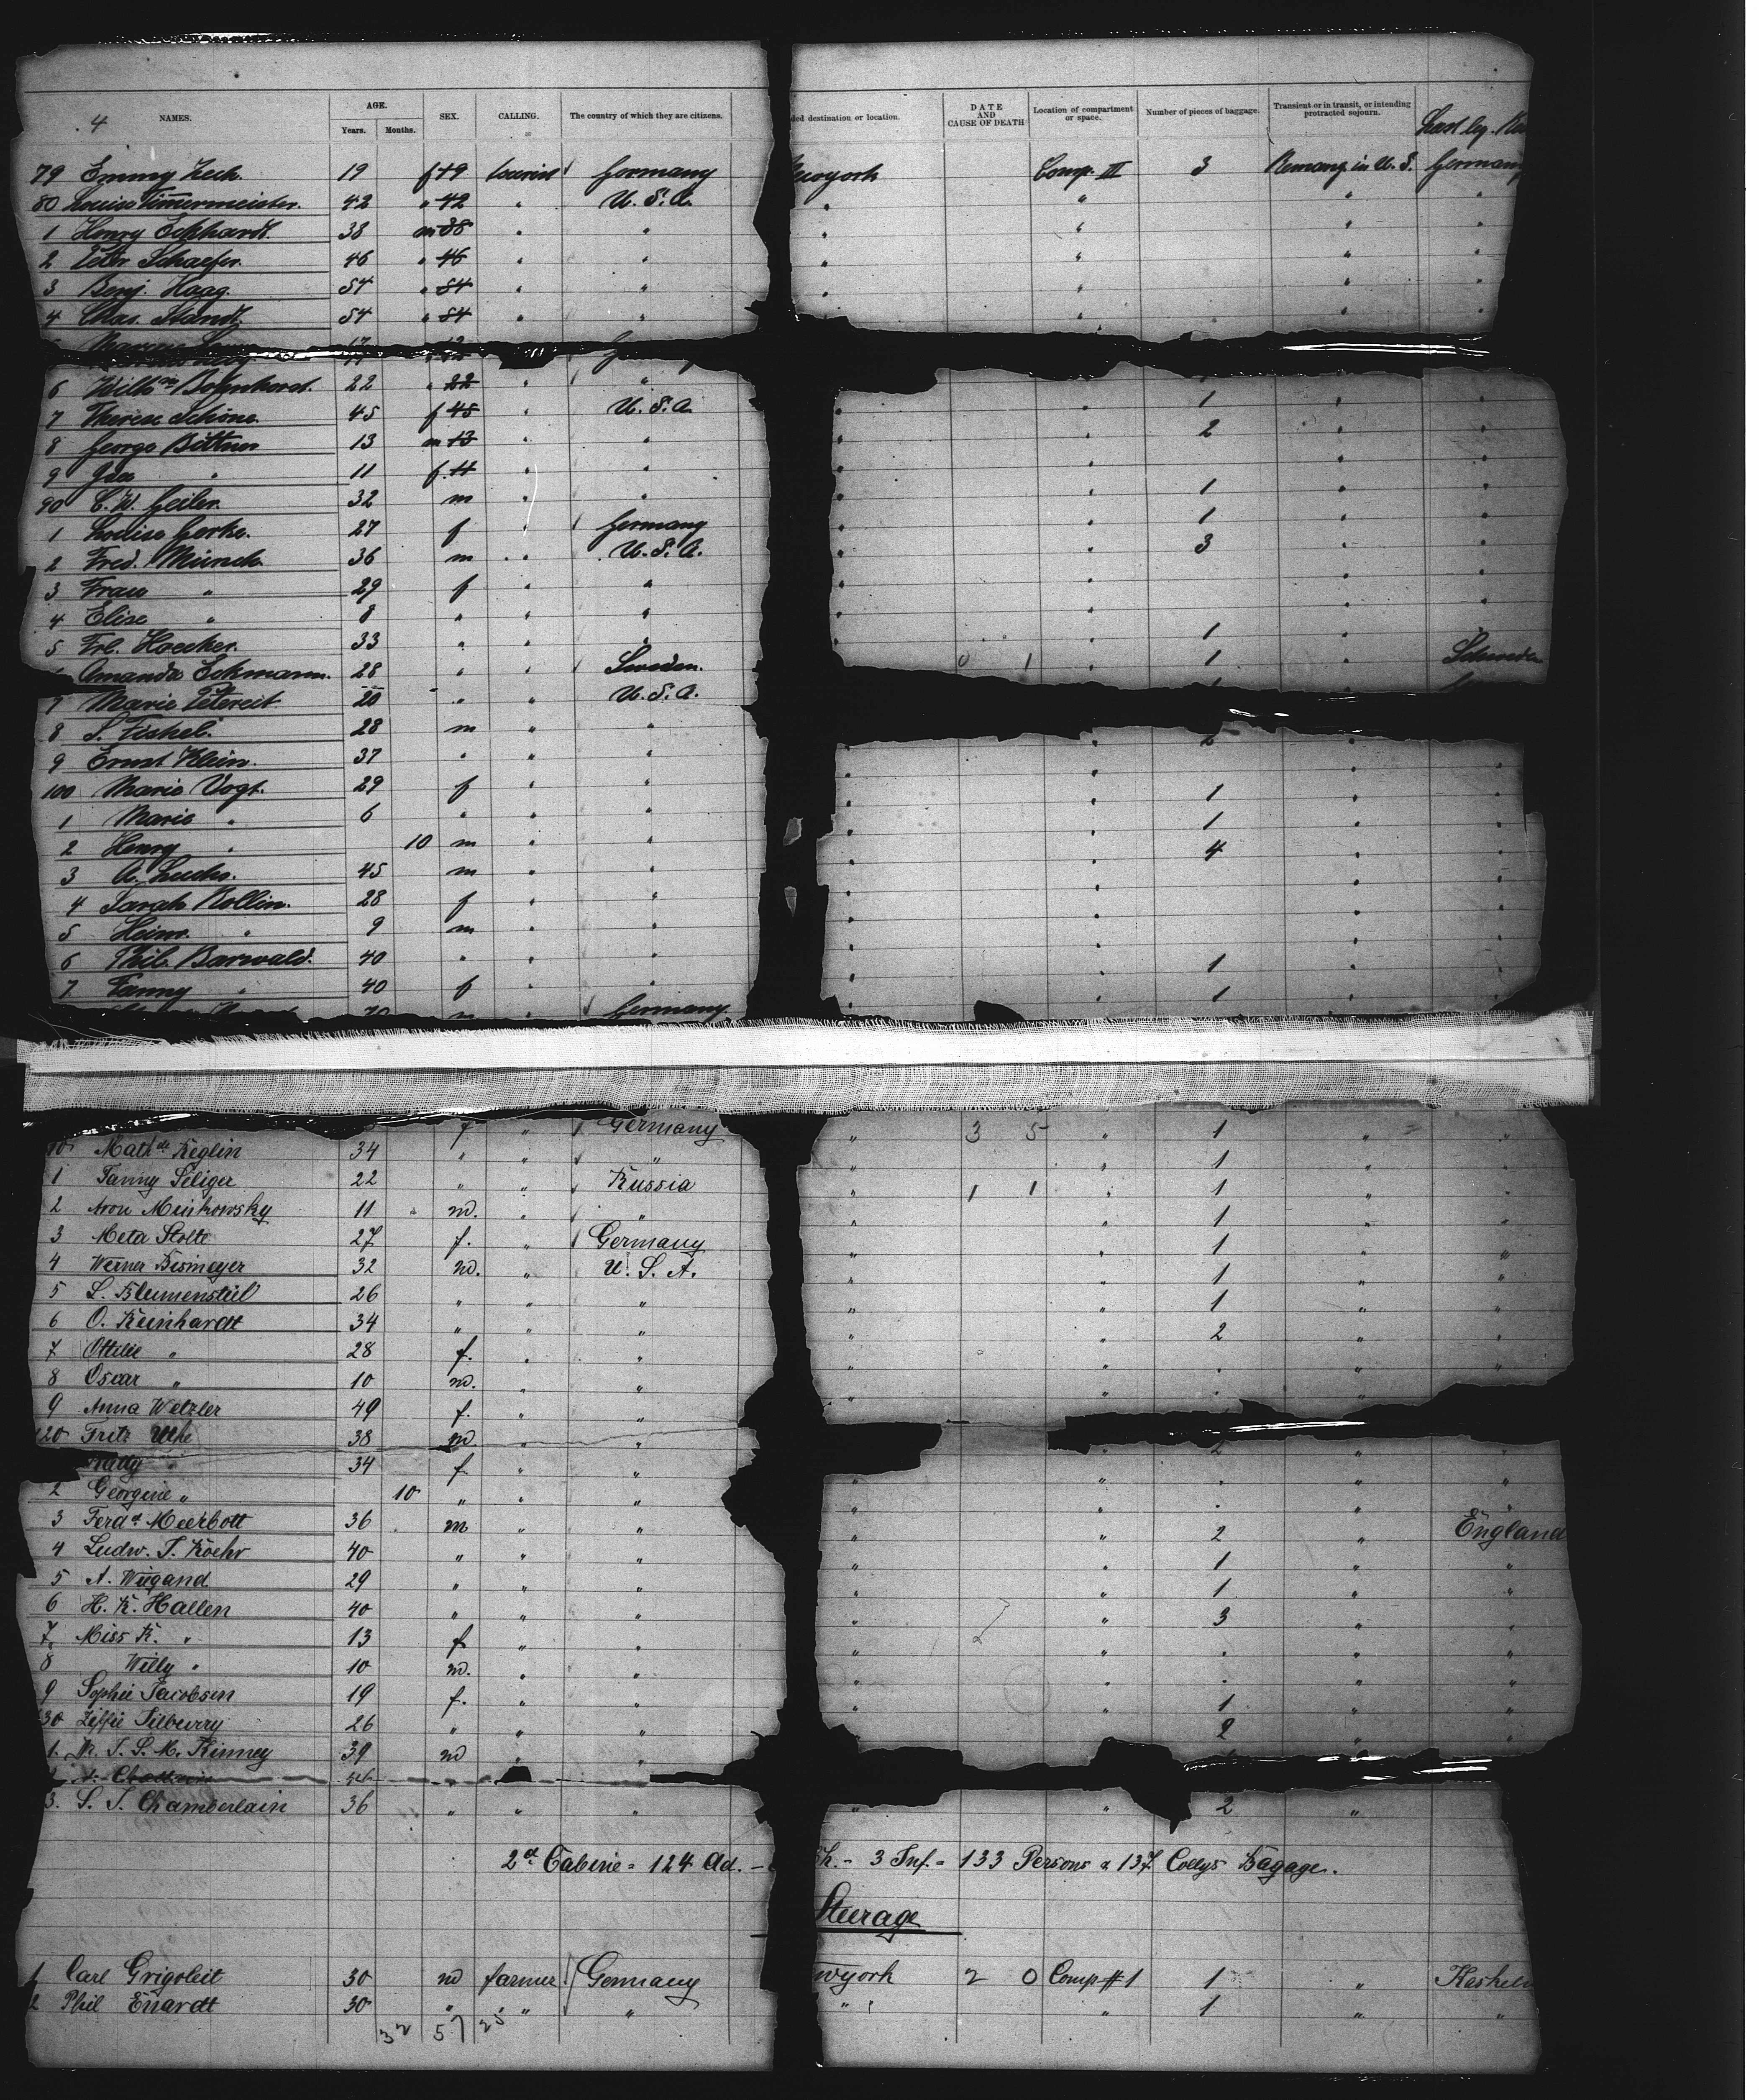 4 NAMES. AGE. Years. Months. SEX. CALLING. The country of which they are citizens. ded destination or location. DATE AND CAUSE OF DEATH Location of compartment or space. Number of pieces of baggage. Transient or in transit, or intending protracted sojourn.
79 Emmy Zech. 19 f 19 tourist Germany ewyork Comp. III 3 U. S. Germany
80 Louise Timmermeister. 42 " 42 " U. S. A. " " " "
1 Henry Eckhardt. 38 m 38 " " " " " "
2 Peter Schaefer. 46 " 46 " " " " " "
3 Benj. Haag. 54 " 54 " " " " " "
4 Chas. Standt. 54 " 54 " " " " "
6 Wilhm 22 " 22 " "
7 Therese Schöne. 45 f 45 " U. S. A. " " 1 " "
8 George Böttner 13 m 13 " " " " 2 " "
9 " 11 f 11 " " " " " "
90 C. W. Geiler. 32 m " " " 1 " "
1 Louise Gerke. 27 f " Germany " " 1 " "
2 Fred. Münch 36 m " U. S. A. " " 3 " "
3 Frau " 29 f " " " " " "
4 Elise " 8 " " " " " " "
5 Frl. Hoecker. 33 " " " " " 1 " "
Amanda Eckmann. 28 " " Sweden. 0 1 " 1 "
7 Marie Petereit 20 " " U. S. A.
8 S. Fishel. 28 m " " " " 2 " "
9 Ernst Klein. 37 " " " " " " "
100 Marie Vogt. 29 f " " " " 1 " "
1 Marie " 6 " " " " " 1 " "
2 Henry " 10 m " " " " 4 " "
3 A. Luchs. 45 m " " " " " "
4 Sarah Rollin. 28 f " " " " " "
5 Heinr. " 9 m " " " " " "
6 Phil. Barwald. 40 " " " " " 1 " "
7 Fanny " 40 f " " " " 1 " "
70 m " Germany.
f " Germany " 3 5 " 1 " "
10 Mathde Reglin 34 " " " " " 1 " "
1 Fanny Seliger 22 " " Russia " 1 1 " 1 " "
2 Aron Minkowsky 11 m. " " " " 1 " "
3 Meta Stolte 27 f. " Germany " " 1 " "
4 Werner Bismeyer 32 m. " U. S. A. " " 1 " "
5 L. Blumenstiel 26 " " " " " 1 " "
6 O. Reinhardt 34 " " " " " 2 " "
7 Ottilie " 28 f. " " " " . " "
8 Oscar " 10 m. " " " " . "
9 Anna Wetzler 49 f. " "
120 Fritz Uhl 38 m. " " " 2 " "
34 f. " " " " . " "
2 Georgine " 10 " " " " " . " "
3 Ferdd Meerbott 36 m " " " " 2 " England
4 Ludw. F. Koehr 40 " " " " " 1 " "
5 A. Wiegand 29 " " " " " 1 " "
6 H. K. Hallen 40 " " " " " 3 " "
7. Miss K. " 13 f " " " " . " "
8 Willy " 10 m. " " " " . " "
9 Sophie Jacobsen 19 f. " " " " 1 " "
130 26 " " " 2 " "
1. 39 m " "
3. S. J. Chamberlain 36 " " " " " 2 "
2d Cabine = 124 Ad. - Ch. - 3 Inf. = 133 Persons & 137 Collys Bagage.
Steerage
1 Carl Grigoleit 30 m farmer Germany wyork 2 0 Comp # 1 1 "
2 Phil 30 " " " " " 1 " "
32 57 25